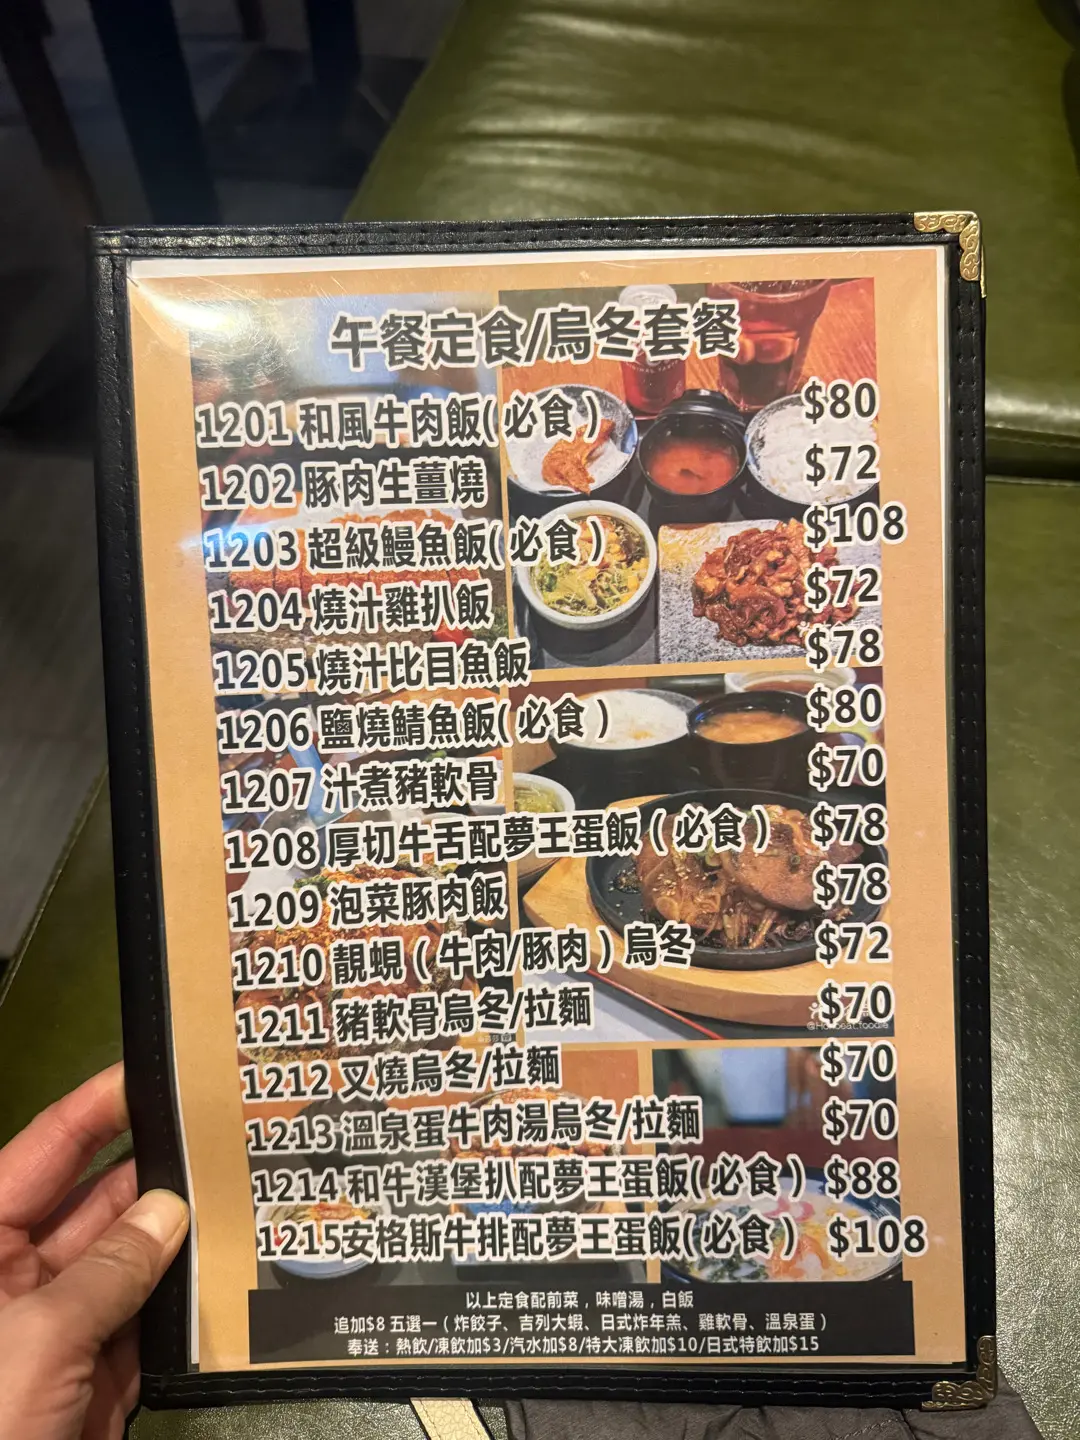 午餐定食/烏冬套餐
1201 和風牛肉飯(必食) $80
1202 豚肉生薑燒 $72
1203 超級鰻魚飯(必食) $108
1204 燒汁雞扒飯 $72
1205 燒汁比目魚飯 $78
1206 鹽燒鯖魚飯(必食) $80
1207 汁煮豬軟骨 $70
1208 厚切牛舌配夢王蛋飯(必食) $78
1209 泡菜豚肉飯 $78
1210 靚蜆(牛肉/豚肉)烏冬 $72
1211 豬軟骨烏冬/拉麵 $70
1212 叉燒烏冬/拉麵 $70
1213 溫泉蛋牛肉湯烏冬/拉麵 $70
1214 和牛漢堡扒配夢王蛋飯(必食) $88
1215安格斯牛排配夢王蛋飯(必食) $108
以上定食配前菜,味噌湯,白飯
追加$8 五選一(炸餃子、吉列大蝦、日式炸年羔、雞軟骨、溫泉蛋)
奉送:熱飲/凍飲加$3/汽水加$8/特大凍飲加$10/日式特飲加$15